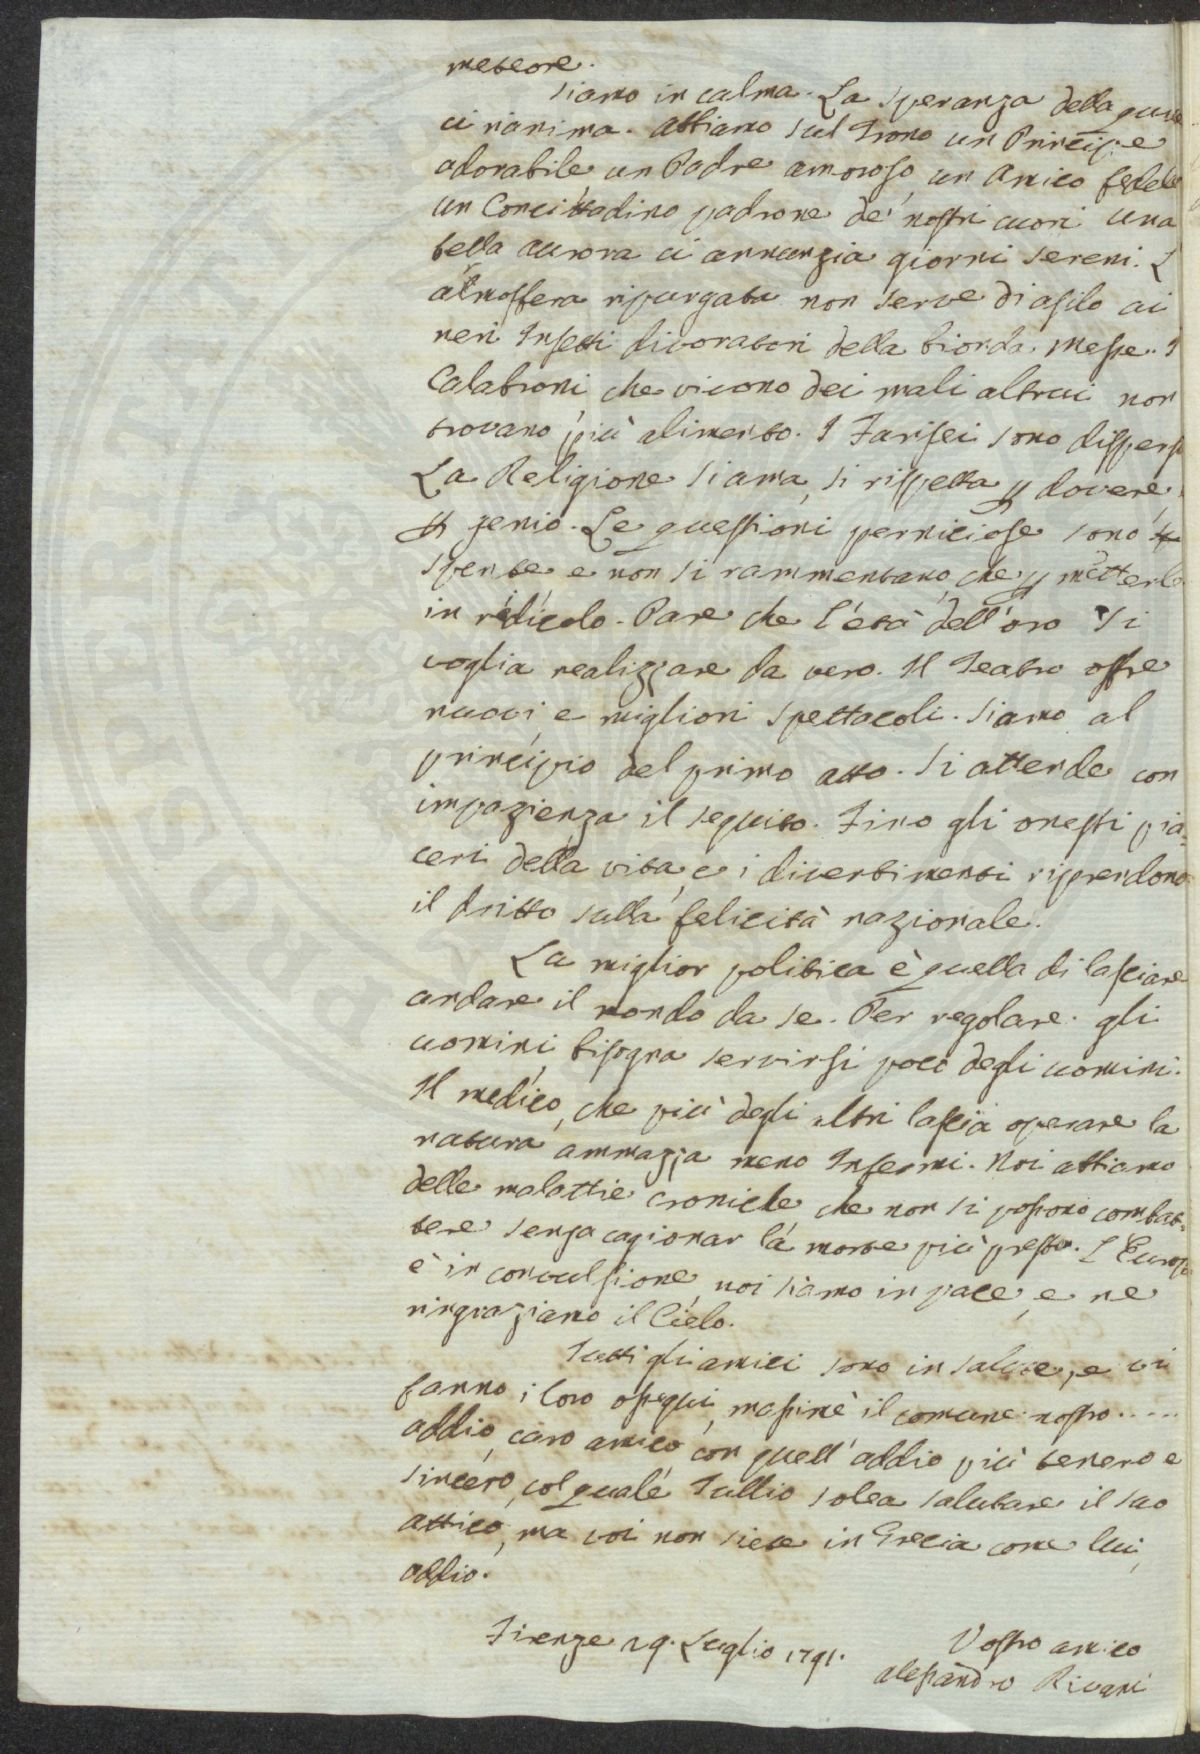 meteore.
Siamo in calma. La speranza della
ci rianima. abbiamo sul Trono un Principe
adorabile, un Padre amoroso, un Amico fedele
un Concittadino padrone de' nostri cuori una
bella aurora ci annunzia giorni sereni. L'
atmosfera ripurgata non serve di asilo ai
neri Insetti divoratori della bionda messe. I
Calabroni che vivono dei mali altrui non
trovano più alimento. I Farisei sono dispersi
La Religione si ama, si rispetta p dovere,
p genio. Le questioni perniciose sono
spente e non si rammentano, che p metterle
in ridicolo. Pare che l'età dell'oro si
voglia realizzare da vero. Il Teatro offre
nuovi, e migliori spettacoli. Siamo al
principio del primo atto. Si attende con
impazienza il seguito. Fino gli onesti pia-
ceri della vita, e i divertimenti riprendono
il dritto sulla felicità nazionale.
La miglior politica è quella di lasciare
andare il mondo da se. Per regolare gli
uomini, bisogna servirsi poco degli uomini.
Il medico, che più degli altri lascia operare la
natura, ammazza meno Infermi. Noi abbiamo
delle malattie croniche che non si possono combat-
tere senza cagionar la morte più presto. L'Europa
è in convulsione, noi siamo in pace, e ne
ringraziamo il Cielo.
Tutti gli amici sono in salute, e vi
fanno i loro ossequi, massime il comune nostro.....
addio, caro amico, con quell'addio più tenero e
sincero, col quale Tullio solea salutare il suo
attico, ma voi non siete in Grecia come lui,
addio.
Firenze 29. Luglio 1791.
Vostro amico
alessandro Rivani